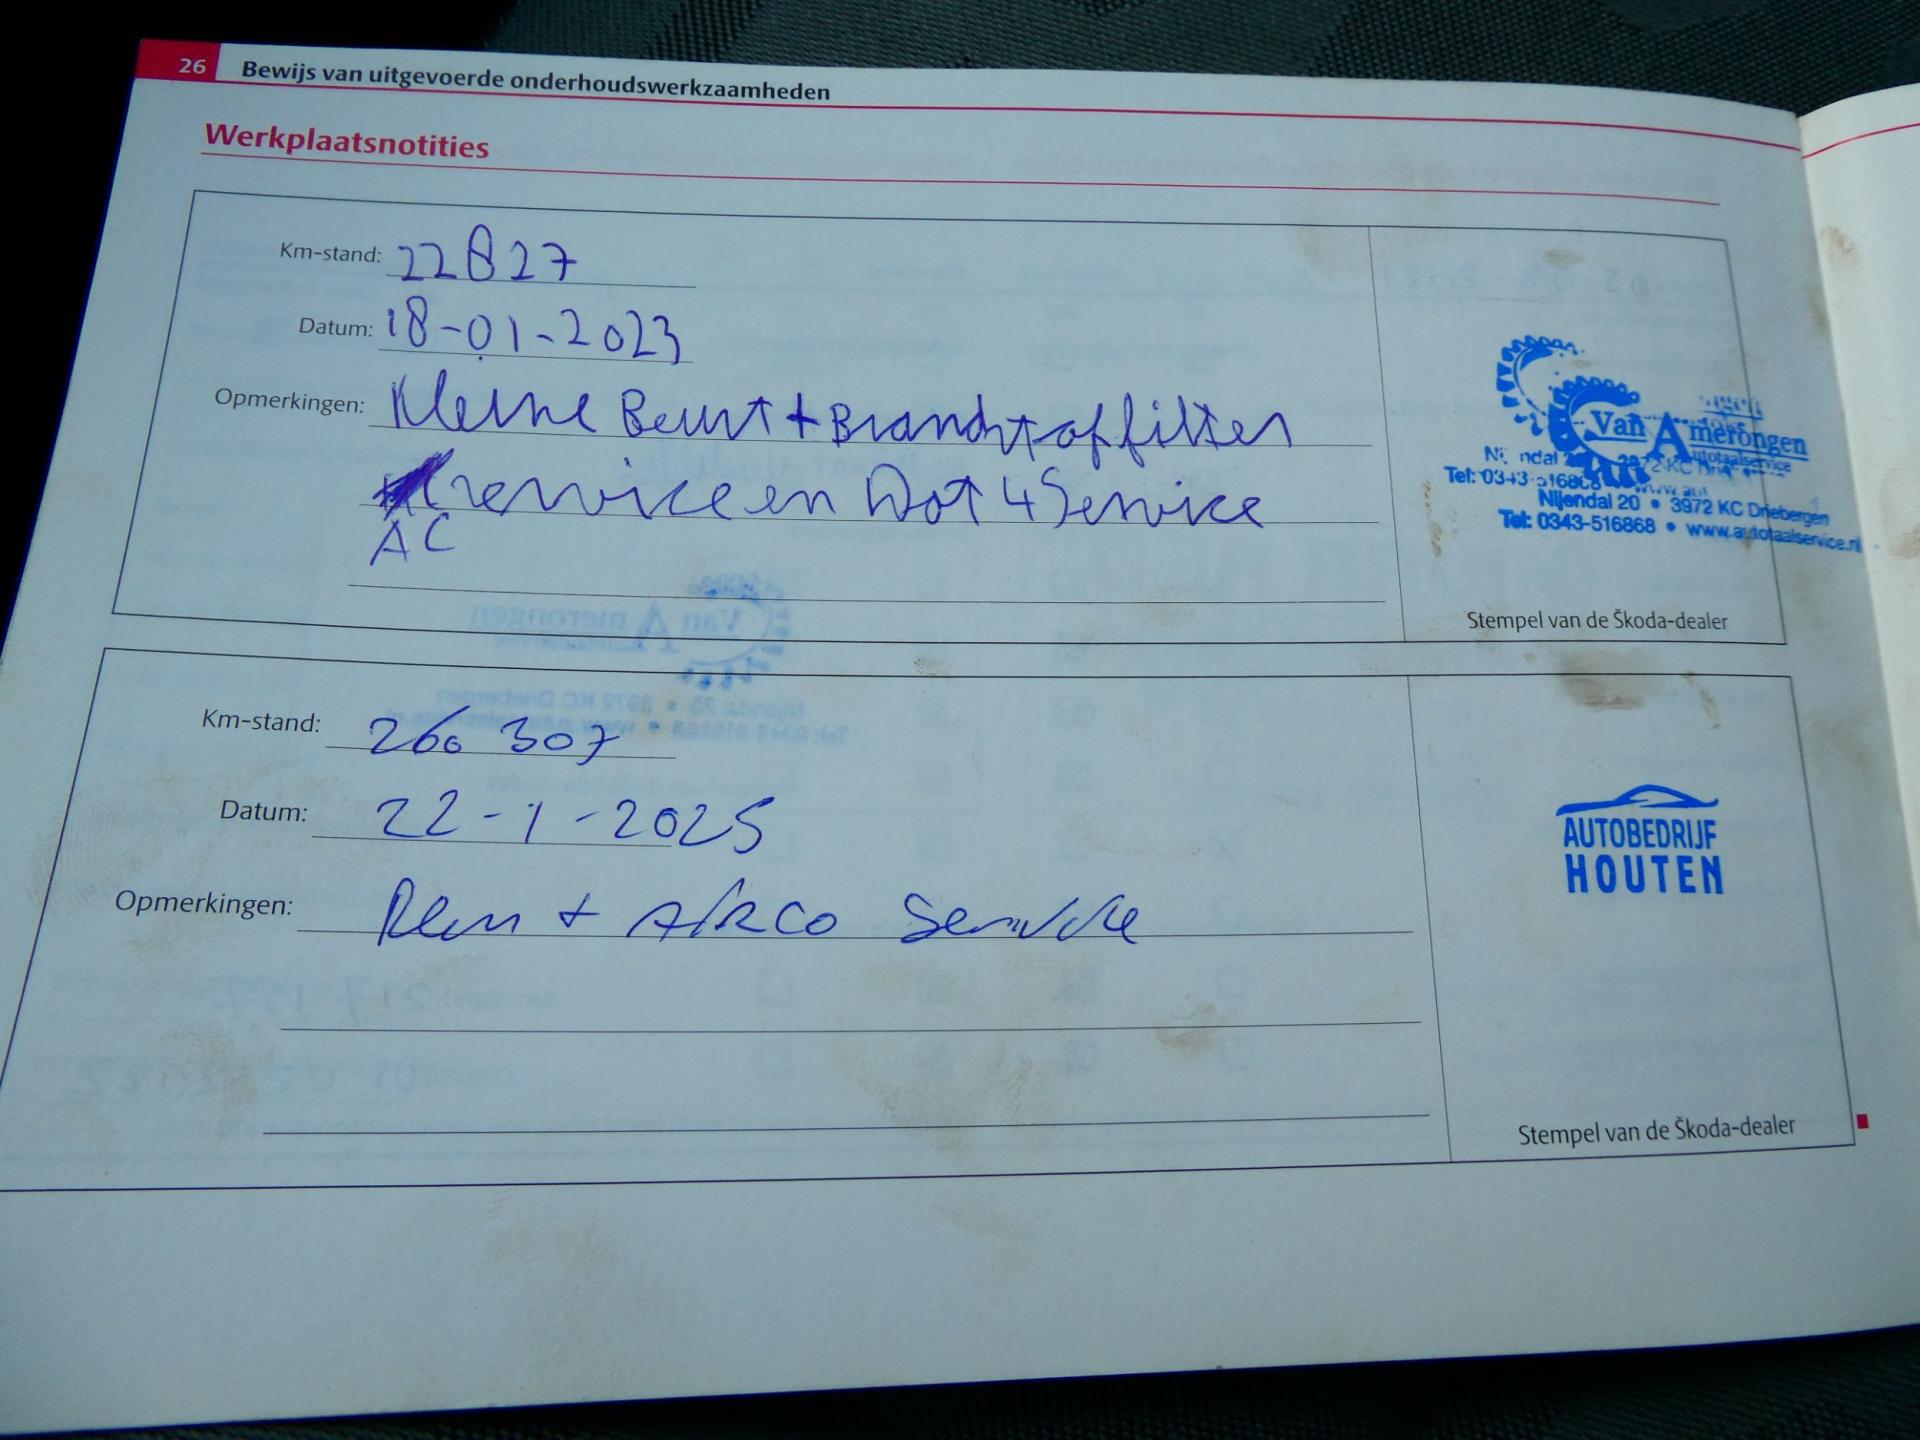 26 Bewijs van uitgevoerde onderhoudswerkzaamheden
Werkplaatsnotities
Km-stand: 22827
Datum: 18-01-2023
Opmerkingen: Kleine Beurt + Brandstoffilter
service en Dot 4 Service
AC
Van Amerongen
Autotaalservice
Nijendal 20 • 3972 KC Driebergen
Tel: 0343-516868 • www.autotaalservice.nl
Stempel van de Škoda-dealer
Km-stand: 260 307
Datum: 22-1-2025
Opmerkingen: Rem + Airco Service
AUTOBEDRIJF
HOUTEN
Stempel van de Škoda-dealer